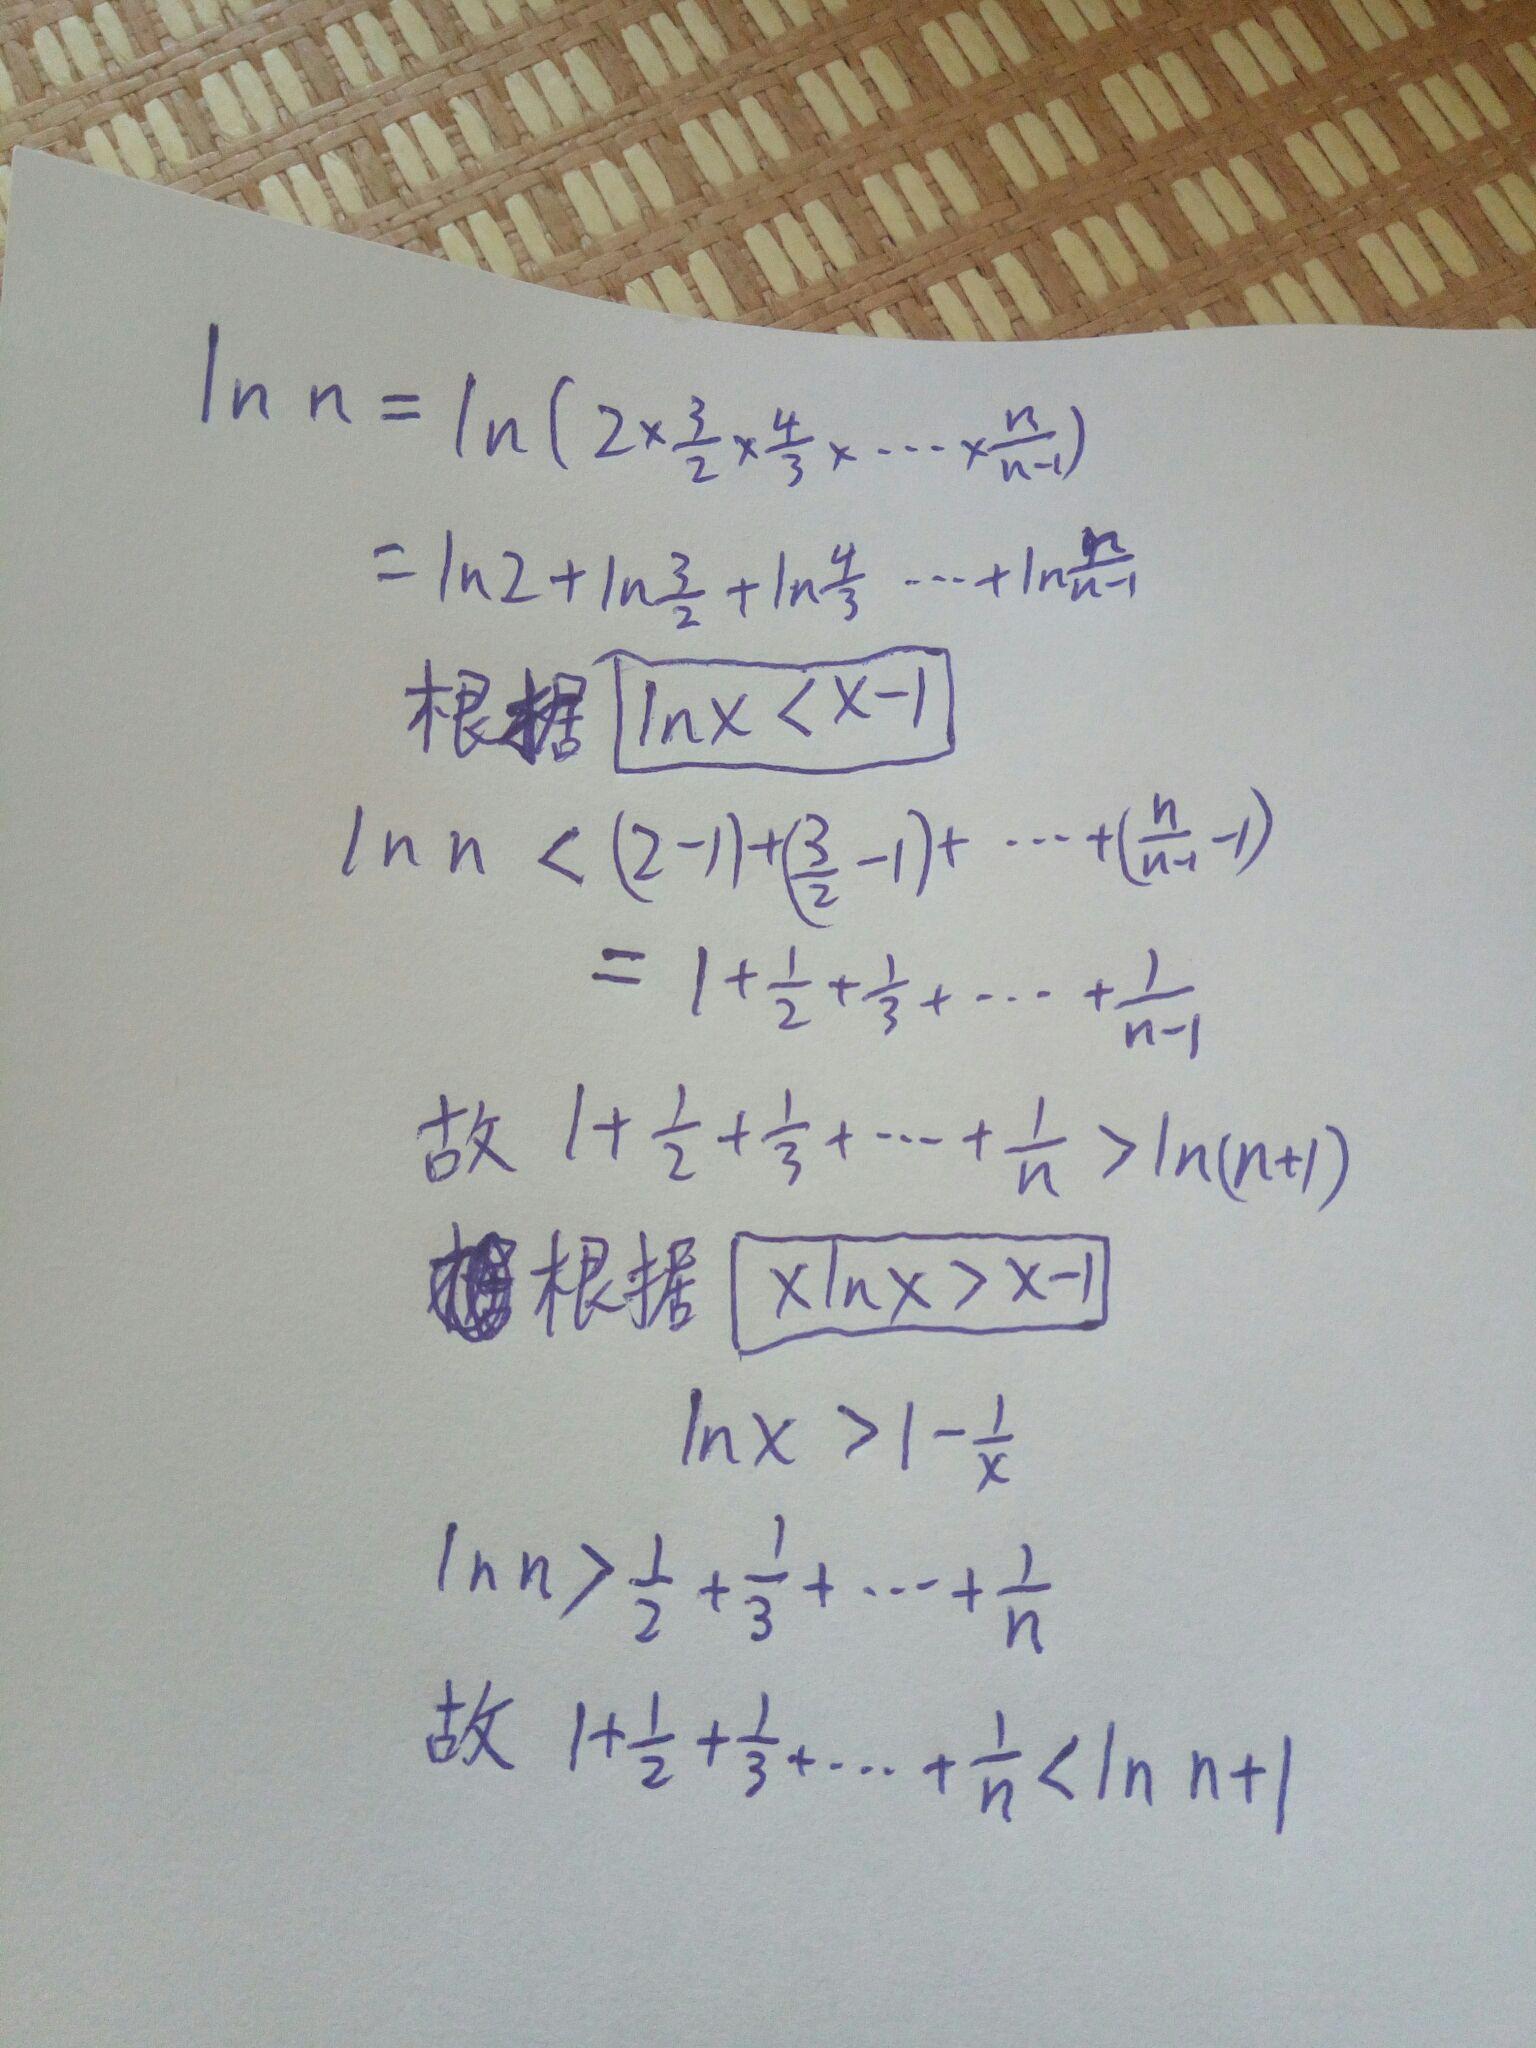 ln n = ln(2×3/2×4/3×····×n/n-1)
= ln2+ln3/2+ln4/3 ····+ln n/n-1
根据 lnx<x-1
ln n < (2-1)+(3/2-1)+ ···· +(n/n-1 -1)
= 1+1/2+1/3+ ···· +1/n-1
故 1+1/2+1/3+····+1/n>ln(n+1)
根据 xlnx>x-1
lnx >1-1/x
ln n>1/2+1/3+····+1/n
故 1+1/2+1/3+····+1/n<ln n+1